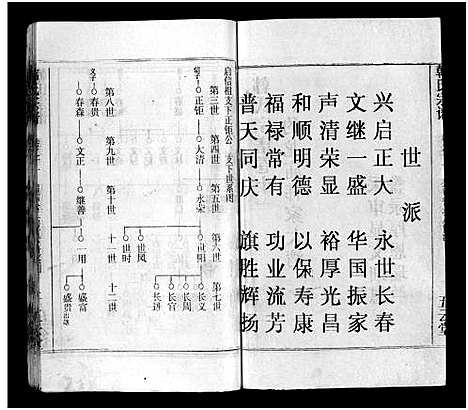 韩氏宗谱
世派
兴启正大　永世长春
文继一盛　华国振家
声清荣显　裕厚光昌
和顺明德　以保寿康
福禄常有　功业流芳
普天同庆　旗胜辉扬
启信祖支下正钜公　支下世系图
第三世　第四世　第五世　第六世　第七世
正钜　大清　永荣　世阳　长义
长周
长官
世凤
世时
第八世　第九世　第十世　十一世　十二世
春贵
春森　文正　继善　一用　盛富
盛贵